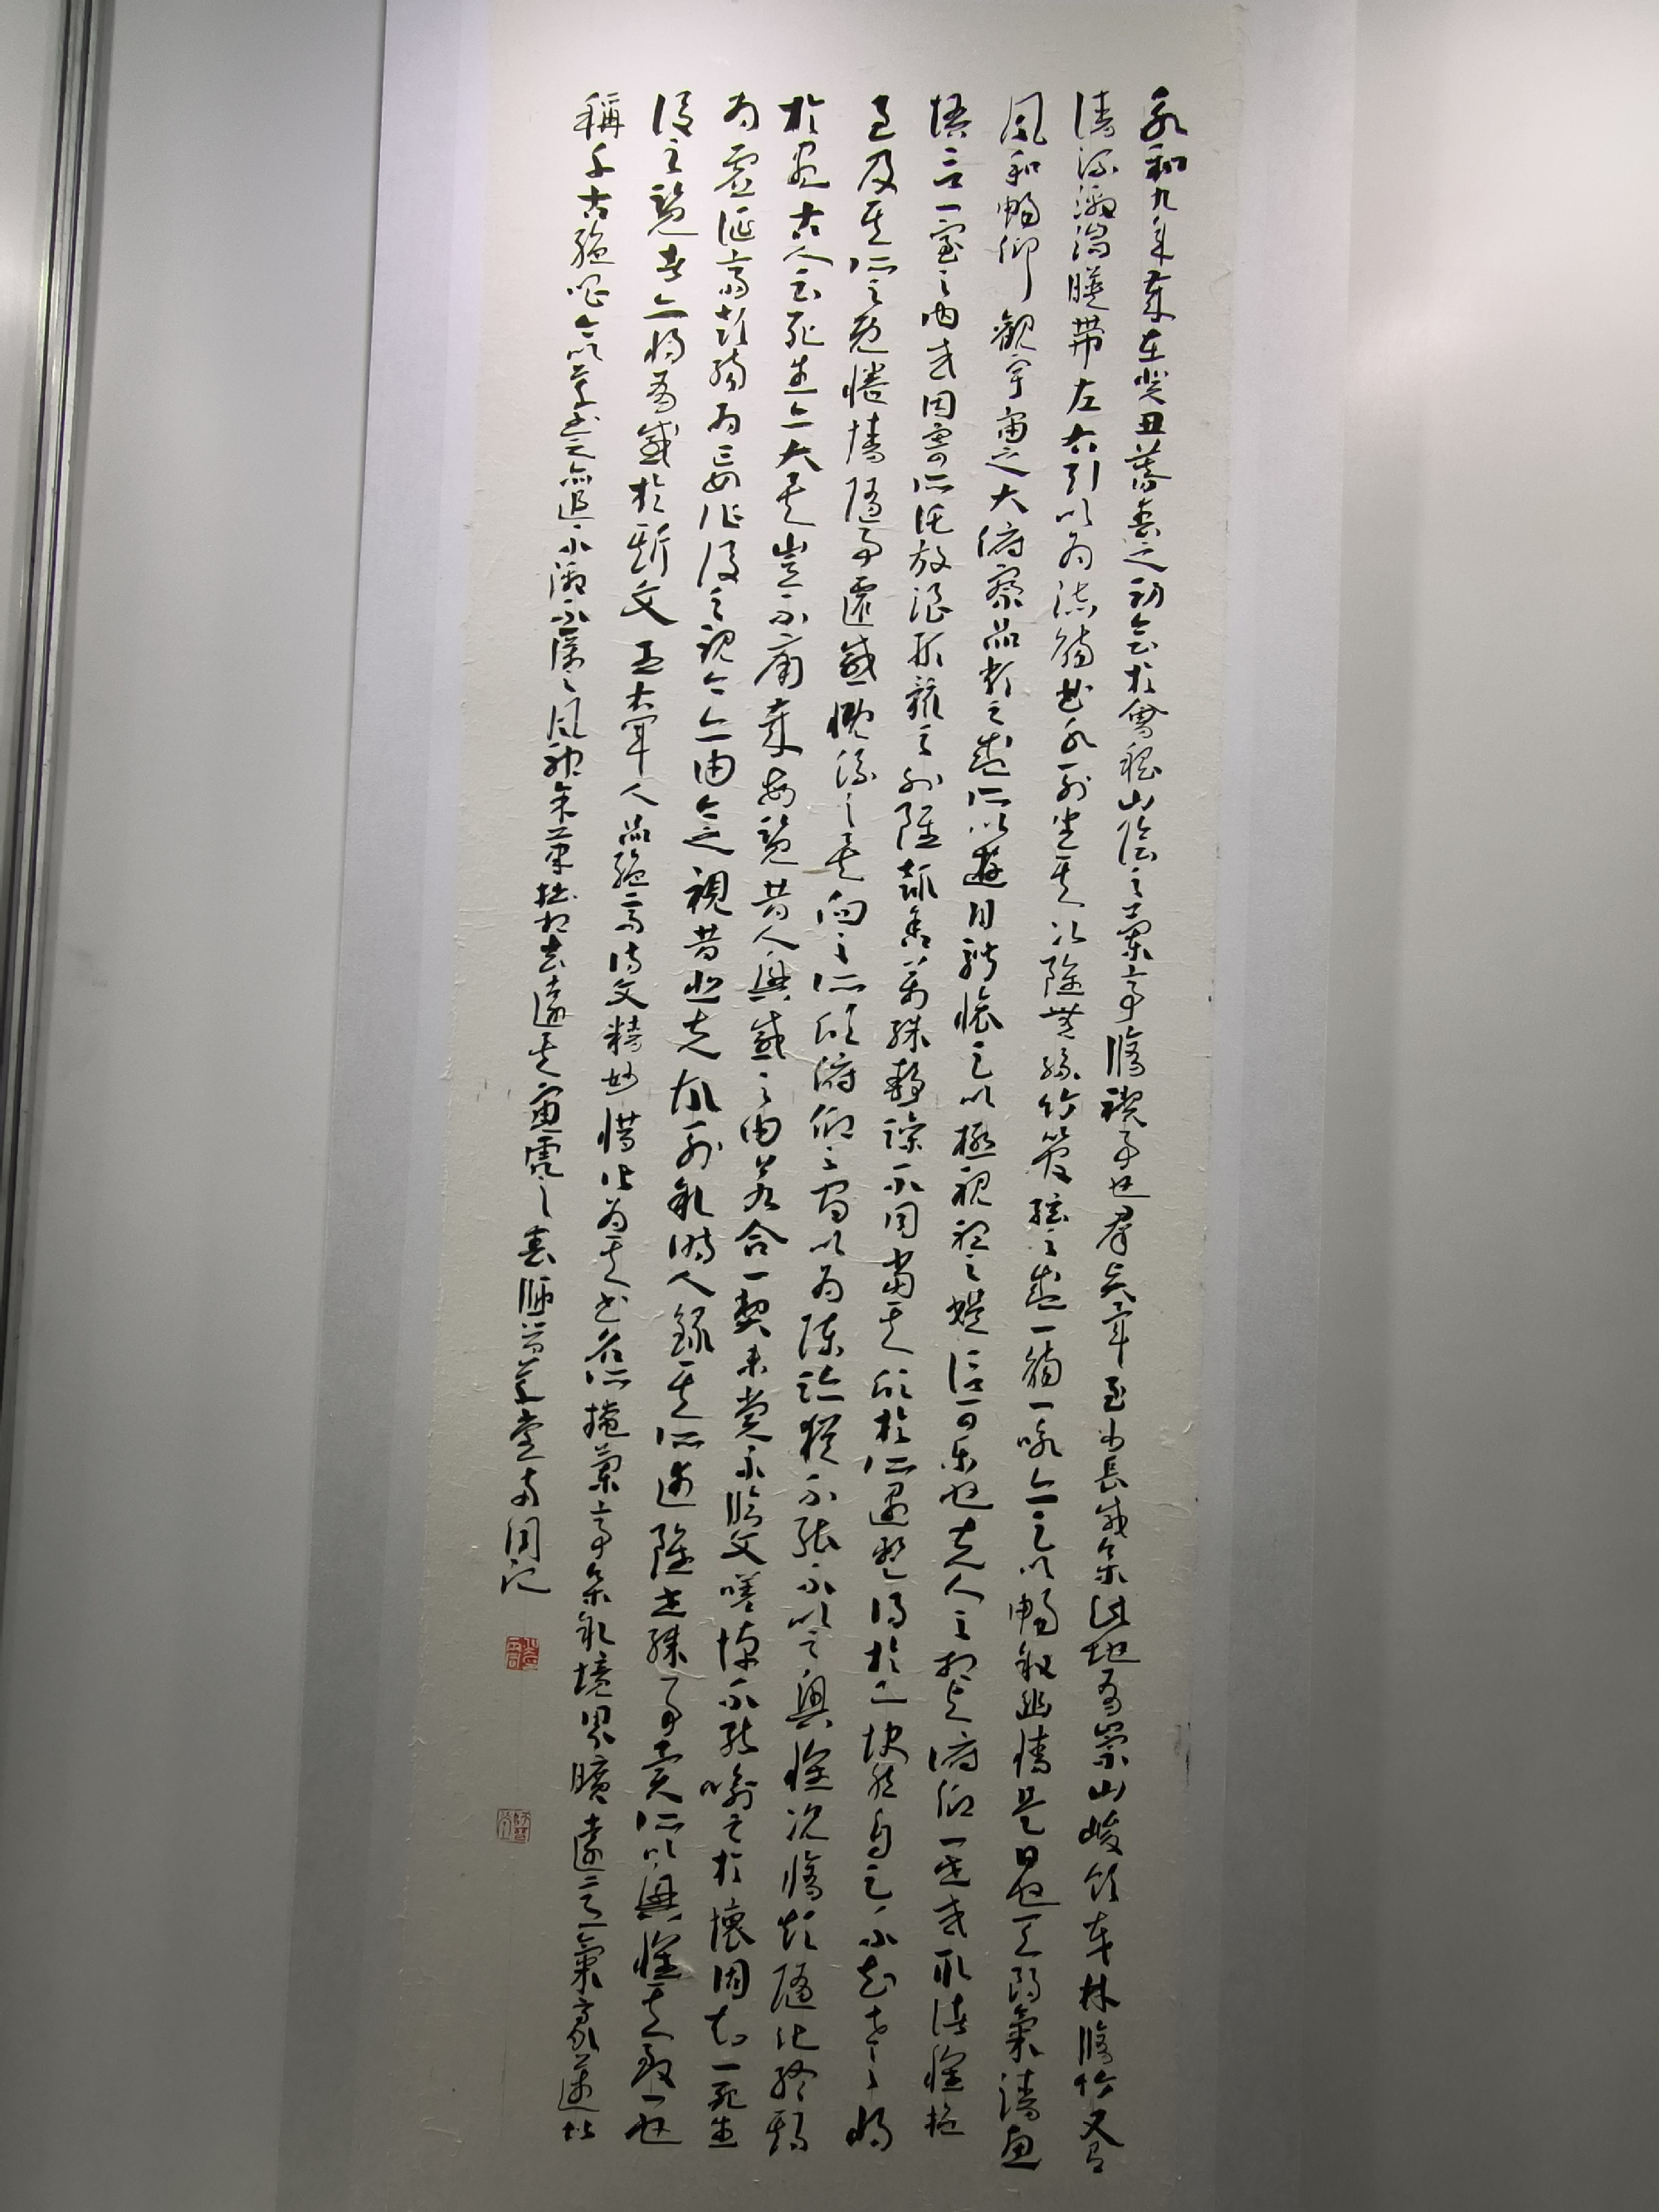 永和九年歲在癸丑暮春之初會於會稽山陰之蘭亭脩禊事也群賢畢至少長咸集此地有崇山峻領茂林脩竹又有
清流激湍暎帶左右引以為流觴曲水列坐其次雖無絲竹管弦之盛一觴一詠亦足以暢敘幽情是日也天朗氣清惠
風和暢仰觀宇宙之大俯察品類之盛所以遊目騁懷足以極視聽之娛信可樂也夫人之相與俯仰一世或取諸懷抱
悟言一室之內或因寄所託放浪形骸之外雖趣舍萬殊靜躁不同當其欣於所遇暫得於己快然自足不知老之將
至及其所之既惓情隨事遷感慨係之矣向之所欣俯仰之間以為陳迹猶不能不以之興懷況脩短隨化終期
於盡古人云死生亦大矣豈不痛哉每覽昔人興感之由若合一契未嘗不臨文嗟悼不能喻之於懷固知一死生
為虛誕齊彭殤為妄作後之視今亦由今之視昔悲夫故列敘時人錄其所述雖世殊事異所以興懷其致一也
後之覽者亦將有感於斯文 王右軍人品絕高詩文精妙惜皆為其書名所掩蘭亭集敘境界曠遠言氣豪邁堪
稱千古絕唱今以草書之無追不激不厲之風神余筆拙相去遠矣 春 師晉草堂 周記